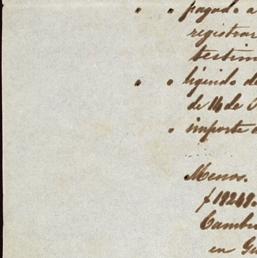 " " pagado a
registrar
testim
" " líquido de
de 14 de O
" importe d
Menos.
f 19249.
Cambio
en Gu